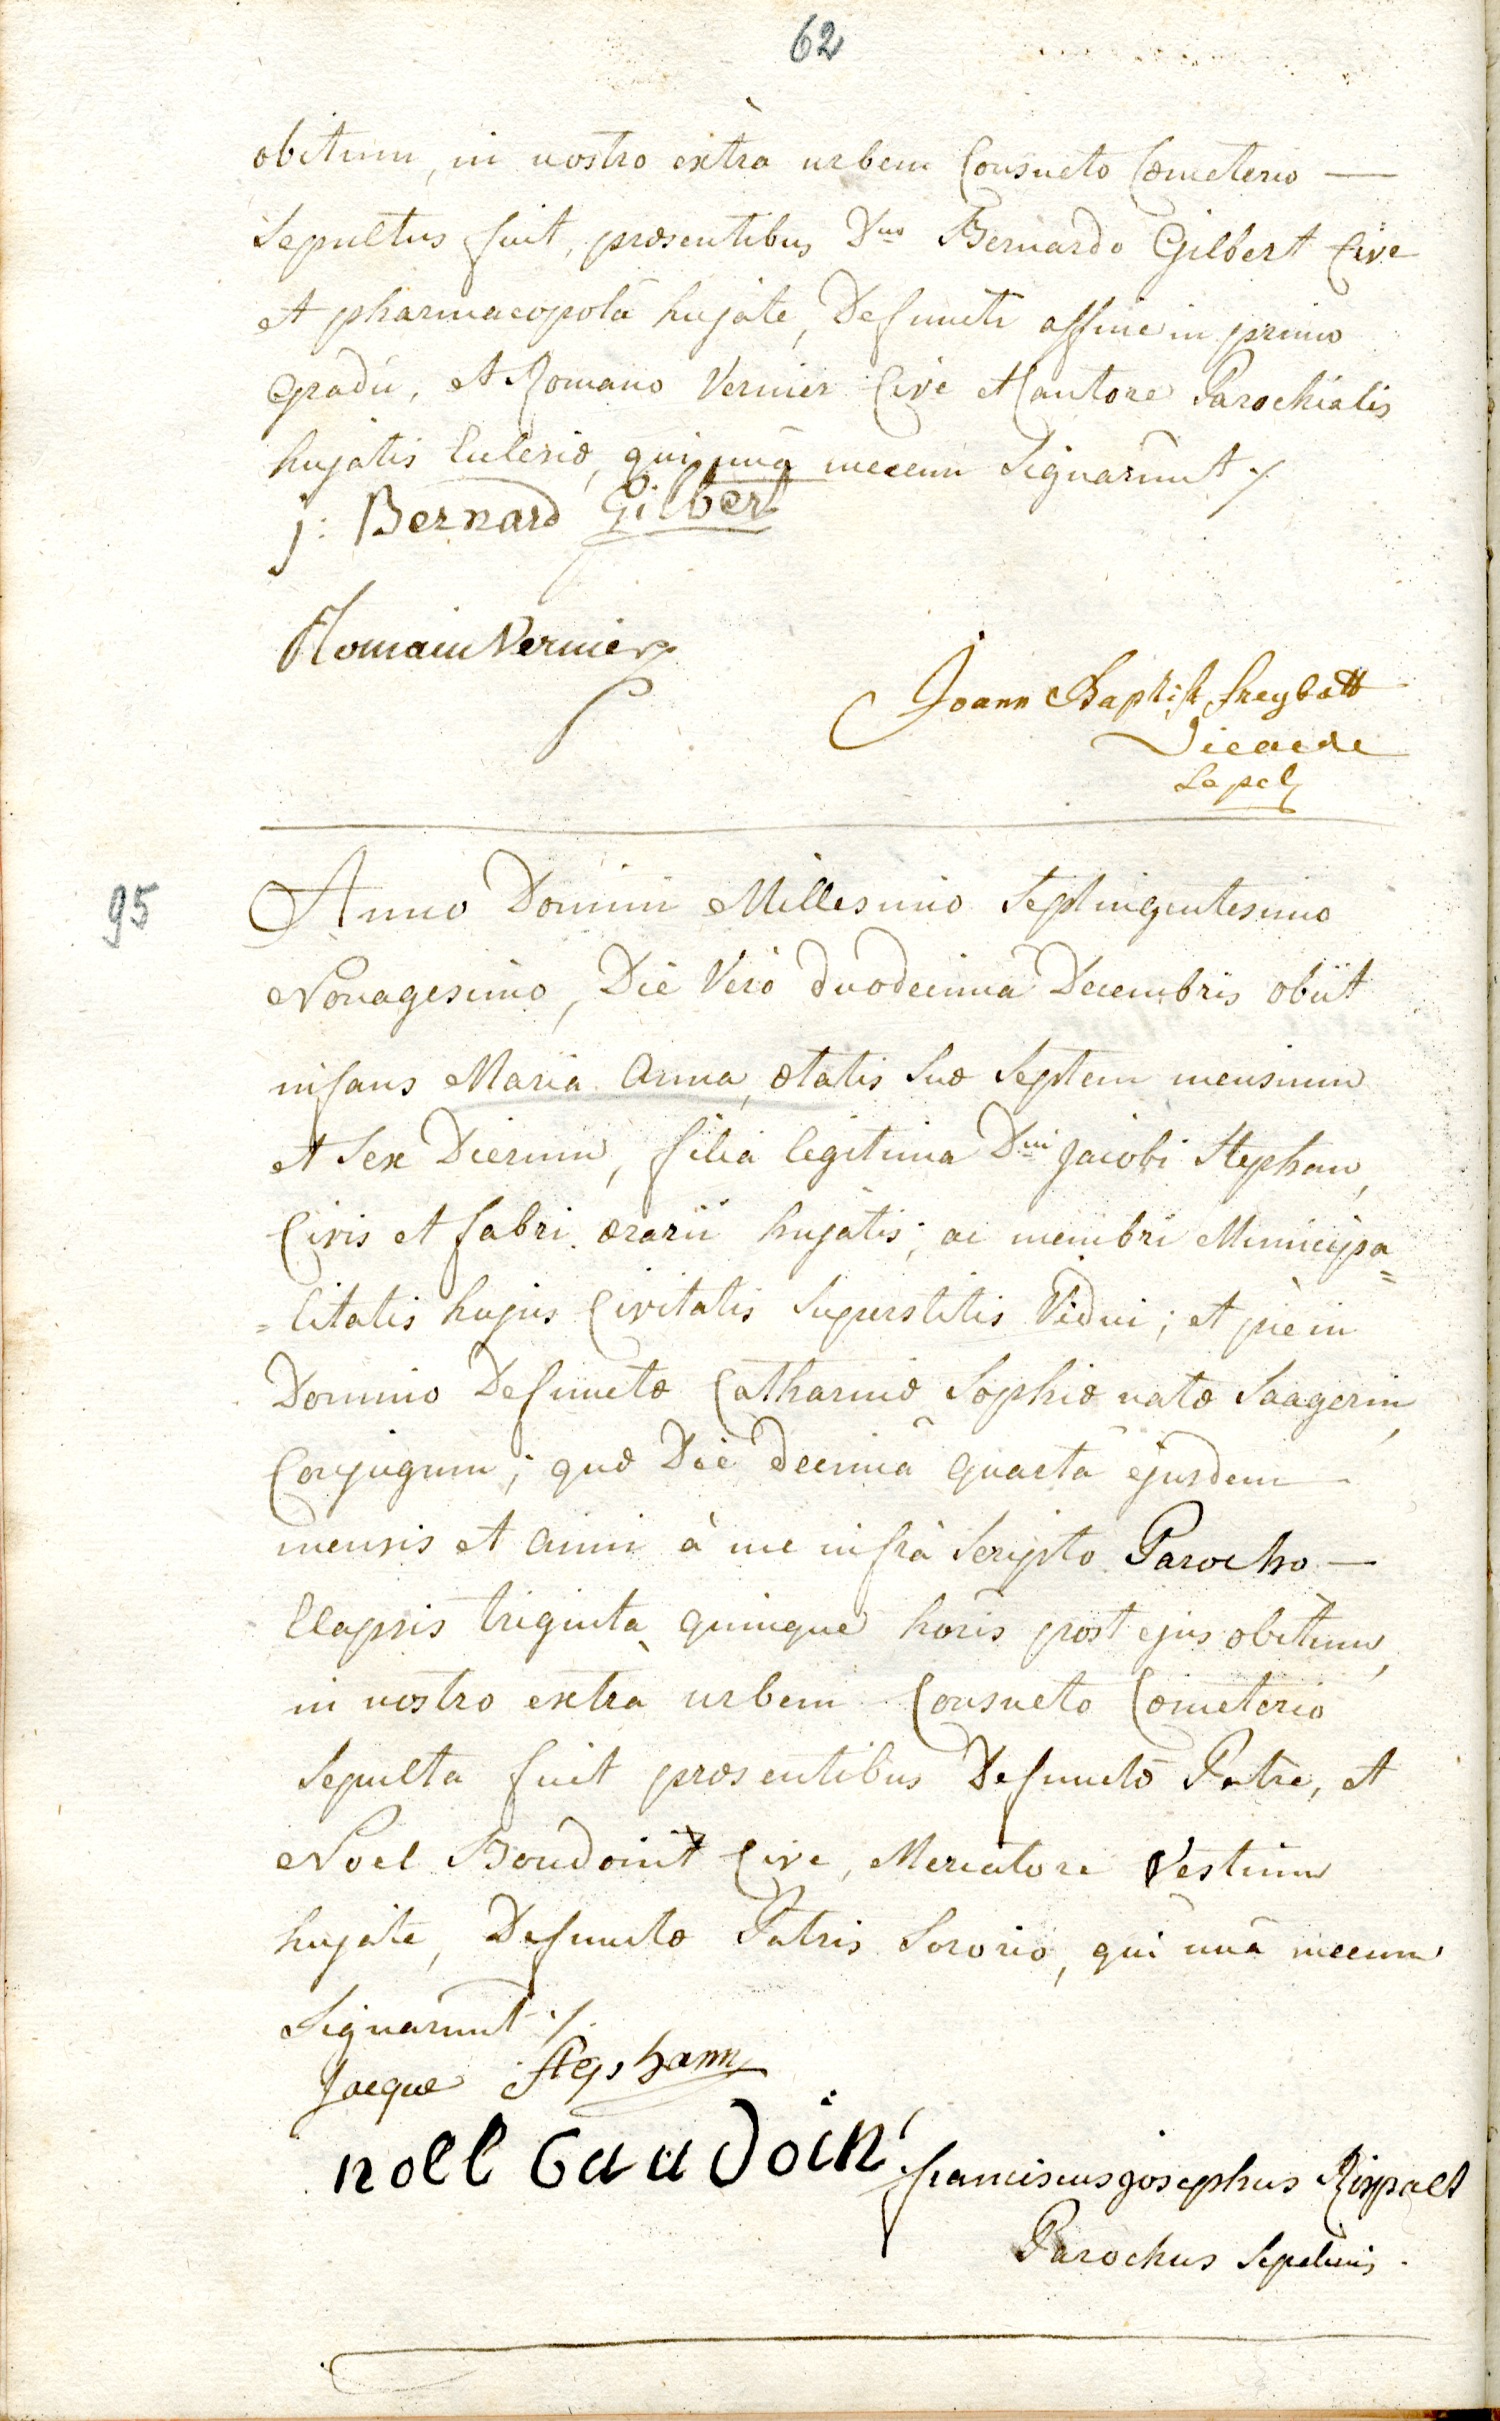 62
obitum, in nostro extrà urbem Consueto Cœmeterio —
Sepultus fuit, præsentibus Dno Bernardo Gilbert Cive
et pharmacopolâ hujate, Defuncti affine in primo
Gradu, et Romano Vernier Cive et Cantore Parochialis
hujatis Ecclesiæ, qui unà mecum Signarunt ./.
j: Bernard Gilbert
Romain Vernier
Joann Baptist freybott
Vicarde
Sepel
95
Anno Domini Millesimo Septingentesimo
Nonagesimo, Die Verò duodecimâ Decembris obiit
infans Maria Anna, ætatis Suæ Septem mensium
et Sex Dierum, filia legitima Dni Jacobi Stephan,
Civis et fabri ærarii hujatis, ac membri Municipa=
=litatis hujus Civitatis Superstitis Vidui; et piè in
Domino Defunctæ Catharinæ Sophiæ natæ Saagerin,
Conjugum; quæ Die decimâ quartâ ejusdem —
mensis et anni à me infrà Scripto Parocho —
Elapsis triginta quinque horis post ejus obitum,
in nostro extrà urbem Consueto Cœmeterio
Sepulta fuit præsentibus Defunctæ Patre, et
Noel Boudoint Cive, Mercatore Vestium
hujate, Defunctæ Patris Sororio, qui unà mecum
Signarunt ./.
Jacque Stephann
noel Gaudoin
franciscus josephus
Parochus Sepeliens.